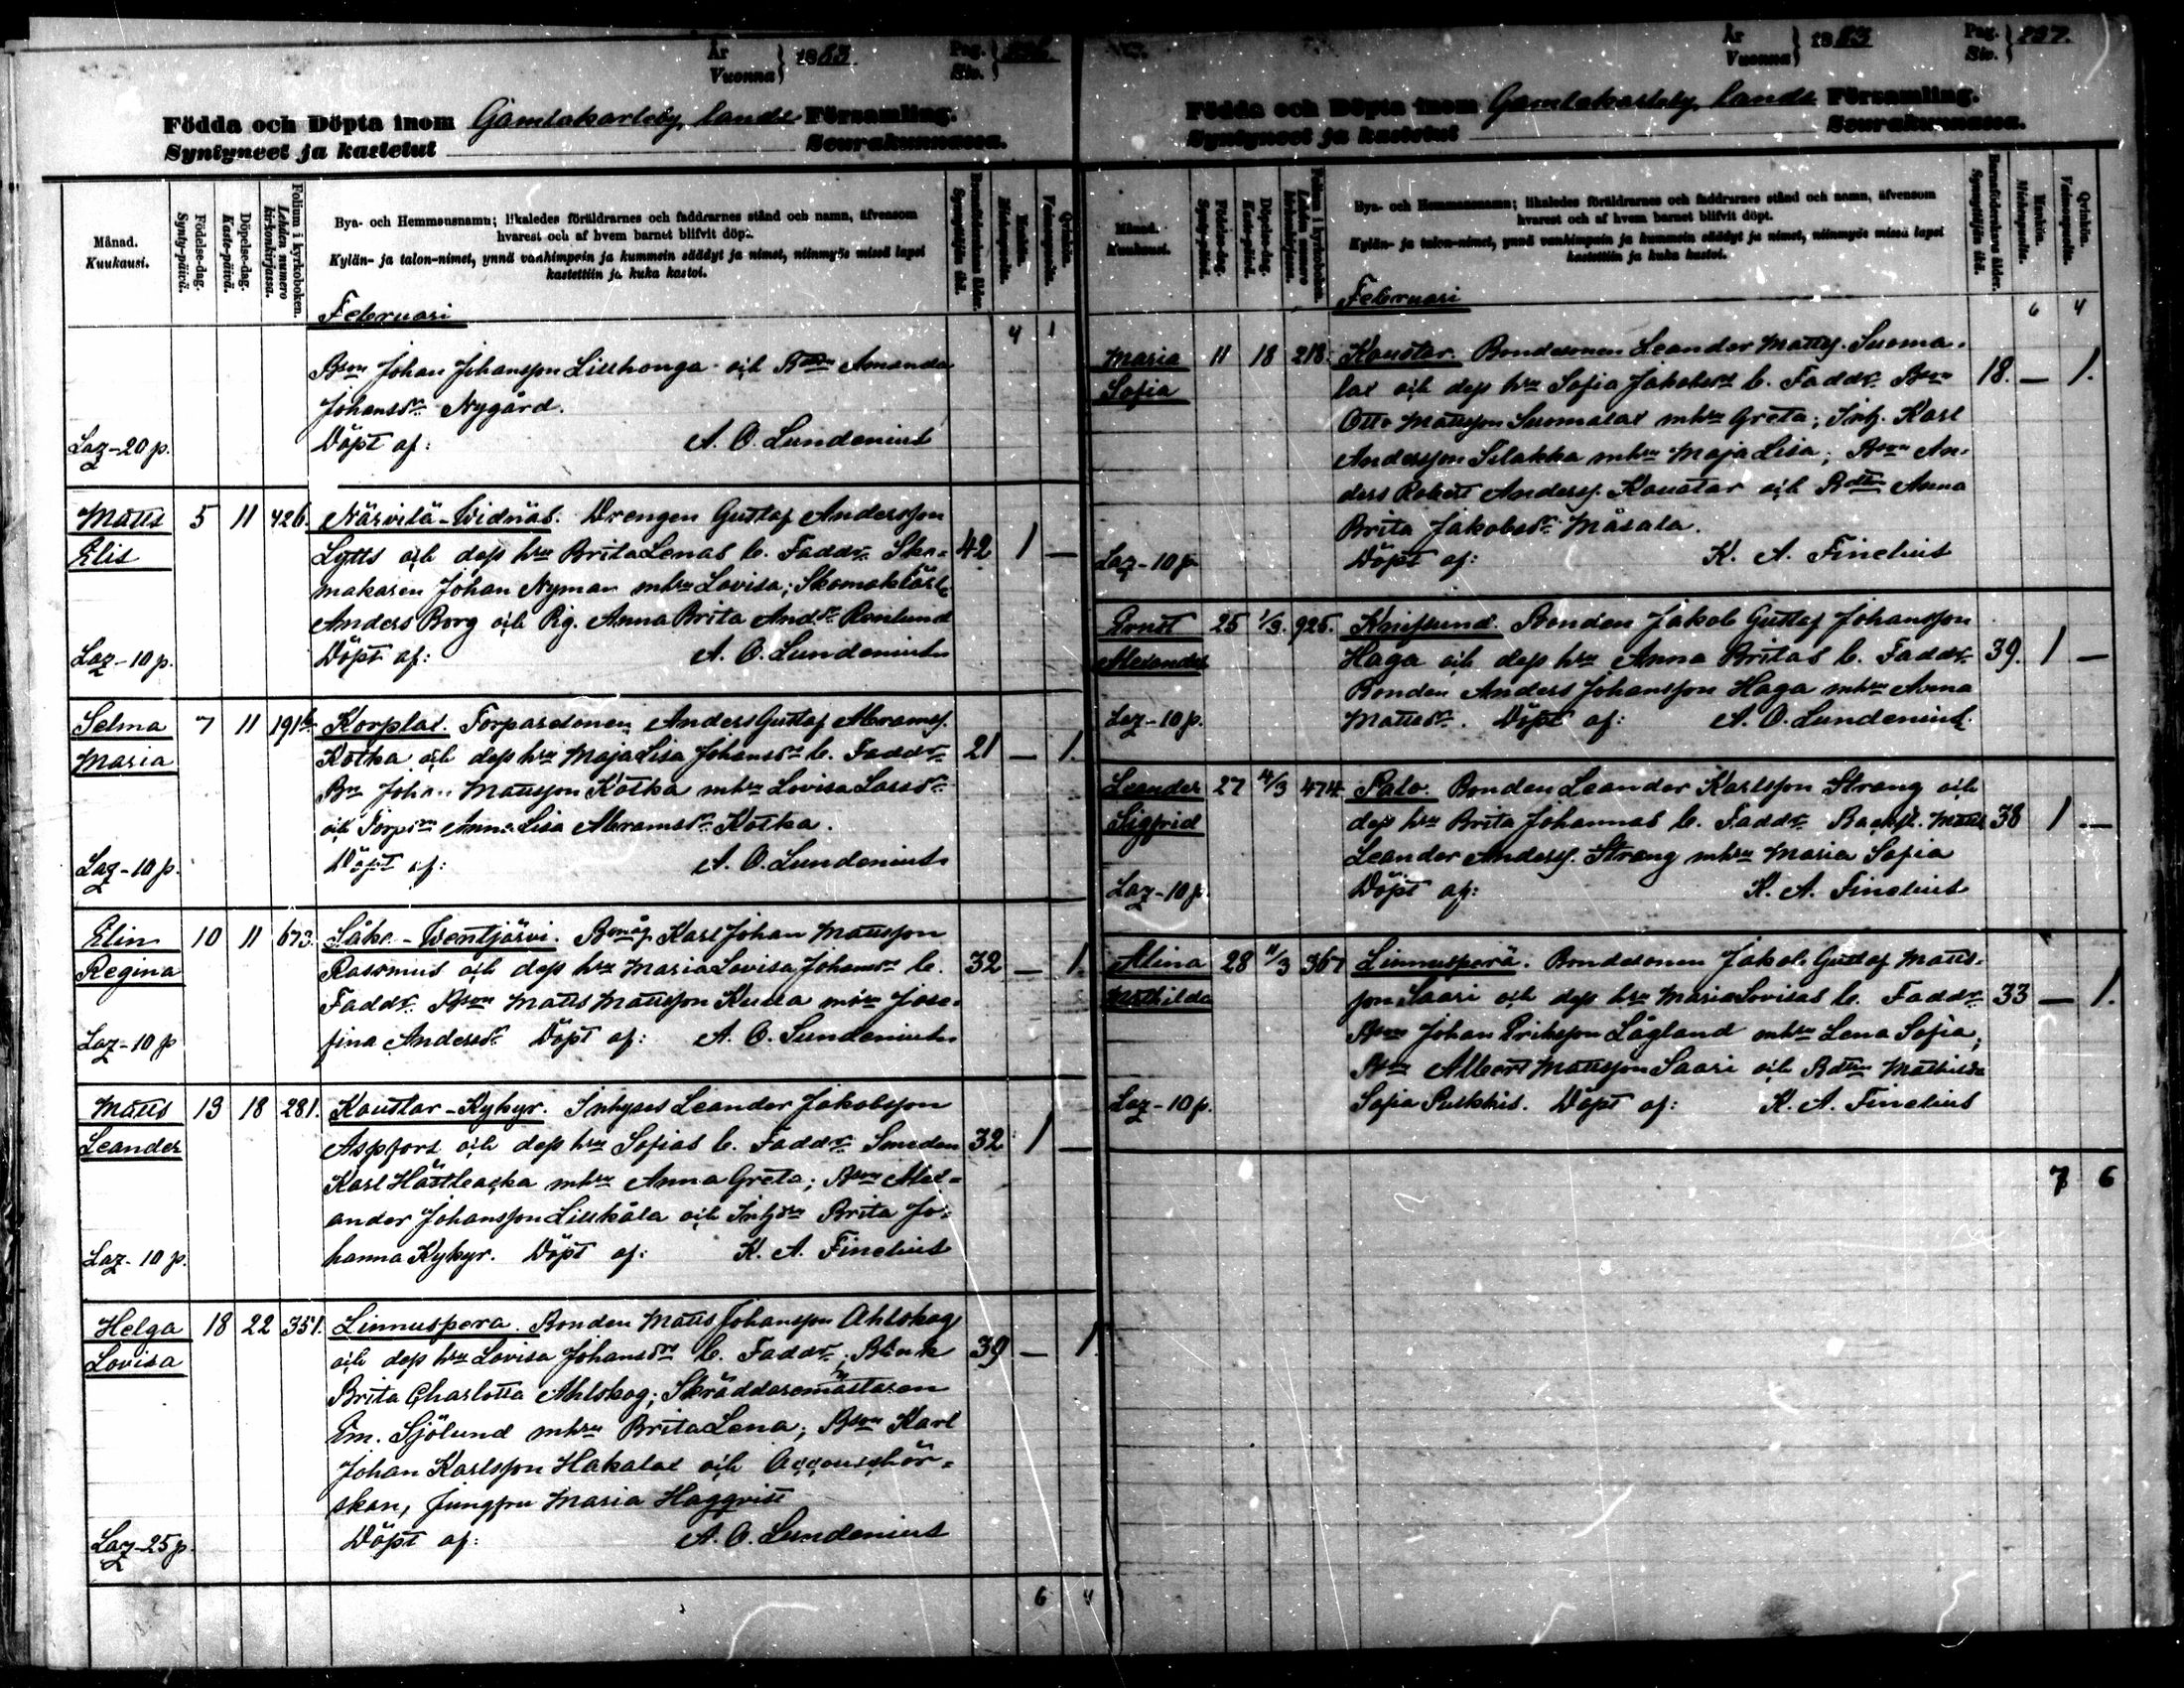 År
Vuonna } 1883.
Pag.
Siv. }
Födda och Döpta inom Gamlakarleby lands Församling.
Syntyneet ja kastetut Seurakunnassa.
Månad.
Kuukausi.
Födelse-dag.
Synty-päivä.
Döpelse-dag.
Kaste-päivä.
Folium i kyrkoboken.
Lehden numero kirkonkirjassa.
Bya- och Hemmansnamn; likaledes föräldrarnes och faddrarnes stånd och namn, äfvensom
hvarest och af hvem barnet blifvit döpt.
Kylän- ja talon-nimet, ynnä vanhimpain ja kummein säädyt ja nimet, niinmyös missä lapsi
kastettiin ja kuka kastoi.
Barnföderskans ålder.
Synnyttäjän ikä.
Mankön.
Miehenpuolia.
Qvinkön.
Vaimonpuolia.
Februari
4 1
Bson Johan Johansson Lillhonga och Bdtr Amanda
Johansdr Nygård.
Laz-20 p. Döpt af: A. O. Lundenius
Matts 5 11 426. Närvilä-Widnäs. Drengen Gustaf Andersson
Elis Lytts och dess hru Brita Lenas b. Faddr. Sko- 42 1 —
makaren Johan Nyman mhru Lovisa; Skomaklärl.
Anders Borg och Pig. Anna Brita Andsdr Rönlund
Laz-10 p. Döpt af: A. O. Lundenius
Selma 7 11 191 Korplax. Torparesonen Anders Gustaf Abramss.
Maria Kotka och dess hru Maja Lisa Johansdrs b. Faddr. 21 — 1.
Bn Johan Mattsson Kotka mhru Lovisa Larsdr
och Anna Lisa Abramsdr Kotka.
Laz-10 p. Döpt af: A. O. Lundenius
Elin 10 11 673. Såka-Wentjärvi. Bmåg Karl Johan Mattsson
Regina Rassmus och dess hru Maria Lovisa Johansdrs b. 32 — 1.
Faddr. Bson Matts Mattsson mhru Jose-
Laz-10 p fina Andersdr Döpt af: A. O. Lundenius
Matts 13 18 281. Kaustar-Kykyr. Inhyses Leander Jakobsson
Leander Aspfors och dess hru Sofias b. Faddr. Smeden 32 1 —
Karl Hästbacka mhru Anna Greta; Bson Alex-
ander Johansson Lillkåla och Brita Jo-
Laz-10 p. hanna Kykyr. Döpt af: K. A. Finelius
Helga 18 22 351. Linnuspera. Bonden Matts Johansson Ahlskog
Lovisa och dess hru Lovisa Johansdrs b. Faddr. 39 — 1
Brita Charlotta Ahlskog; Skräddaremästaren
Em. Sjölund mhru Brita Lena; Bson Karl
Johan Karlsson Hakalax och Accouschör-
skan, Jungfru Maria Haggqvist
Laz-25 p. Döpt af: A. O. Lundenius
6 4
År
Vuonna } 1883
Pag.
Siv. } 227.
Födda och Döpta inom Gamlakarleby lands Församling.
Syntyneet ja kastetut Seurakunnassa.
Månad.
Kuukausi.
Födelse-dag.
Synty-päivä.
Döpelse-dag.
Kaste-päivä.
Folium i kyrkoboken.
Lehden numero kirkonkirjassa.
Bya- och Hemmansnamn; likaledes föräldrarnes och faddrarnes stånd och namn, äfvensom
hvarest och af hvem barnet blifvit döpt.
Kylän- ja talon-nimet, ynnä vanhimpain ja kummein säädyt ja nimet, niinmyös missä lapsi
kastettiin ja kuka kastoi.
Barnföderskans ålder.
Synnyttäjän ikä.
Mankön.
Miehenpuolia.
Qvinkön.
Vaimonpuolia.
Februari
6 4
Maria 11 18 218. Kaustar. Bondesonen Leander Mattss. Suoma-
Sofia lax och dess hru Sofia Jakobsdrs b. Faddr. Bson 18. — 1.
Otto Mattsson Suomalax mhru Greta; Inh. Karl
Andersson Silakka mhru Maja Lisa; Bson An-
ders Robert Anderss. Kaustar och Bdtr Anna
Brita Jakobsdr Måsala.
Laz-10 p Döpt af: K. A. Finelius
Ernst 25 1/3. 925. Knifsund. Bonden Jakob Gustaf Johansson
Alexander Haga och dess hru Anna Britas b. Faddr. 39. 1 —
Bonden Anders Johansson Haga mhru Anna
Laz-10 p. Mattsdr. Döpt af: A. O. Lundenius.
Leander 27 4/3 474 Palo. Bonden Leander Karlsson Strang och
Sigfrid dess hru Brita Johannas b. Faddr. Backst. Matts 38 1 —
Leander Anderss. Strang mhru Maria Sofia
Laz-10 p. Döpt af: K. A. Finelius
Alina 28 11/3 367 Linnusperä. Bondesonen Jakob Gustaf Matts-
Mathilda son Saari och dess hru Maria Lovisas b. Faddr. 33 — 1.
Bson Johan Eriksson Lågland mhru Lena Sofia;
Albert Mattsson Saari och Bdtr Mathilda
Laz-10 p. Sofia Pulkkis. Döpt af: K. A. Finelius
7 6